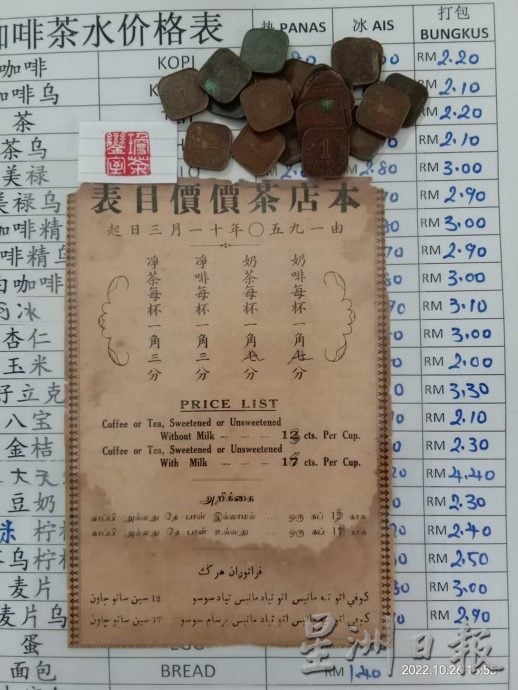 咖啡茶水价格表
热 PANAS
冰 AIS
打包 BUNGKUS
咖啡 KOPI RM 2.20
咖啡乌 RM 2.10
茶 RM 2.20
茶乌 RM 2.10
美禄 2.80 RM 3.00
美禄乌 RM 2.90
咖啡精 RM 3.00
咖啡精乌 RM 2.90
白咖啡 RM 3.00
冰 RM 3.10
杏仁 RM 3.00
玉米 RM 2.00
好立克 RM 3.30
八宝 RM 2.10
金桔 RM 2.30
RM 4.40
豆奶 RM 2.30
柠 RM 2.40
乌柠 RM 2.50
麦片 RM 3.00
麦片乌 RM 2.90
蛋 EGG
面包 BREAD RM 1.40
1
本店茶價價目表
由一九五〇年十一月三日起
奶啡每杯一角七分
奶茶每杯一角七分
净啡每杯一角三分
净茶每杯一角三分
PRICE LIST
Coffee or Tea, Sweetened or Unsweetened
Without Milk .... .... 13 cts. Per Cup.
Coffee or Tea, Sweetened or Unsweetened
With Milk .... .... 17 cts. Per Cup.
அறிக்கை
காப்பி அல்லது தே பால் இல்லாமல் ... ஒரு கப் 13 காசு
காப்பி அல்லது தே பால் உள்ளது ... ஒரு கப் 17 காசு
فراتوران هرݢ
كوفي اتو ته مانيس اتو تياد مانيس تياد سوسو 12 سين ساتو چاون
كوفي اتو ته مانيس اتو تياد مانيس برسام سوسو 17 سين ساتو چاون
星洲日報
2022.10.26 15:55